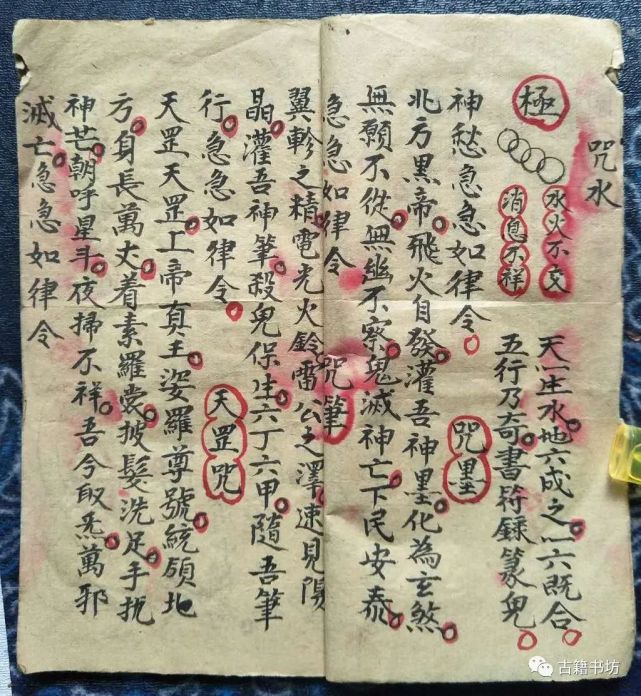 咒水
極
水火不交
消息不祥
天一生水。地六成之。一六既合
五行乃奇。書符錄篆。鬼
神愁。急急如律令。
咒墨
北方黑帝。飛火自發。灌吾神墨。化為玄煞。
無願不從。無幽不察。鬼滅神亡。下民安泰。
急急如律令
咒筆
翼軫之精。電光火鈴。雷公之澤。速見陽
晶。灌吾神筆。殺鬼保生。六丁六甲。隨吾筆
行。急急如律令。
天罡咒
天罡天罡。上帝真王。娑羅尊號。統領北
方。身長萬丈。着素羅裳。披髮洗足。手扰
神芒。朝呼星斗。夜掃不祥。吾今取炁。萬邪
滅亡。急急如律令
古籍书坊